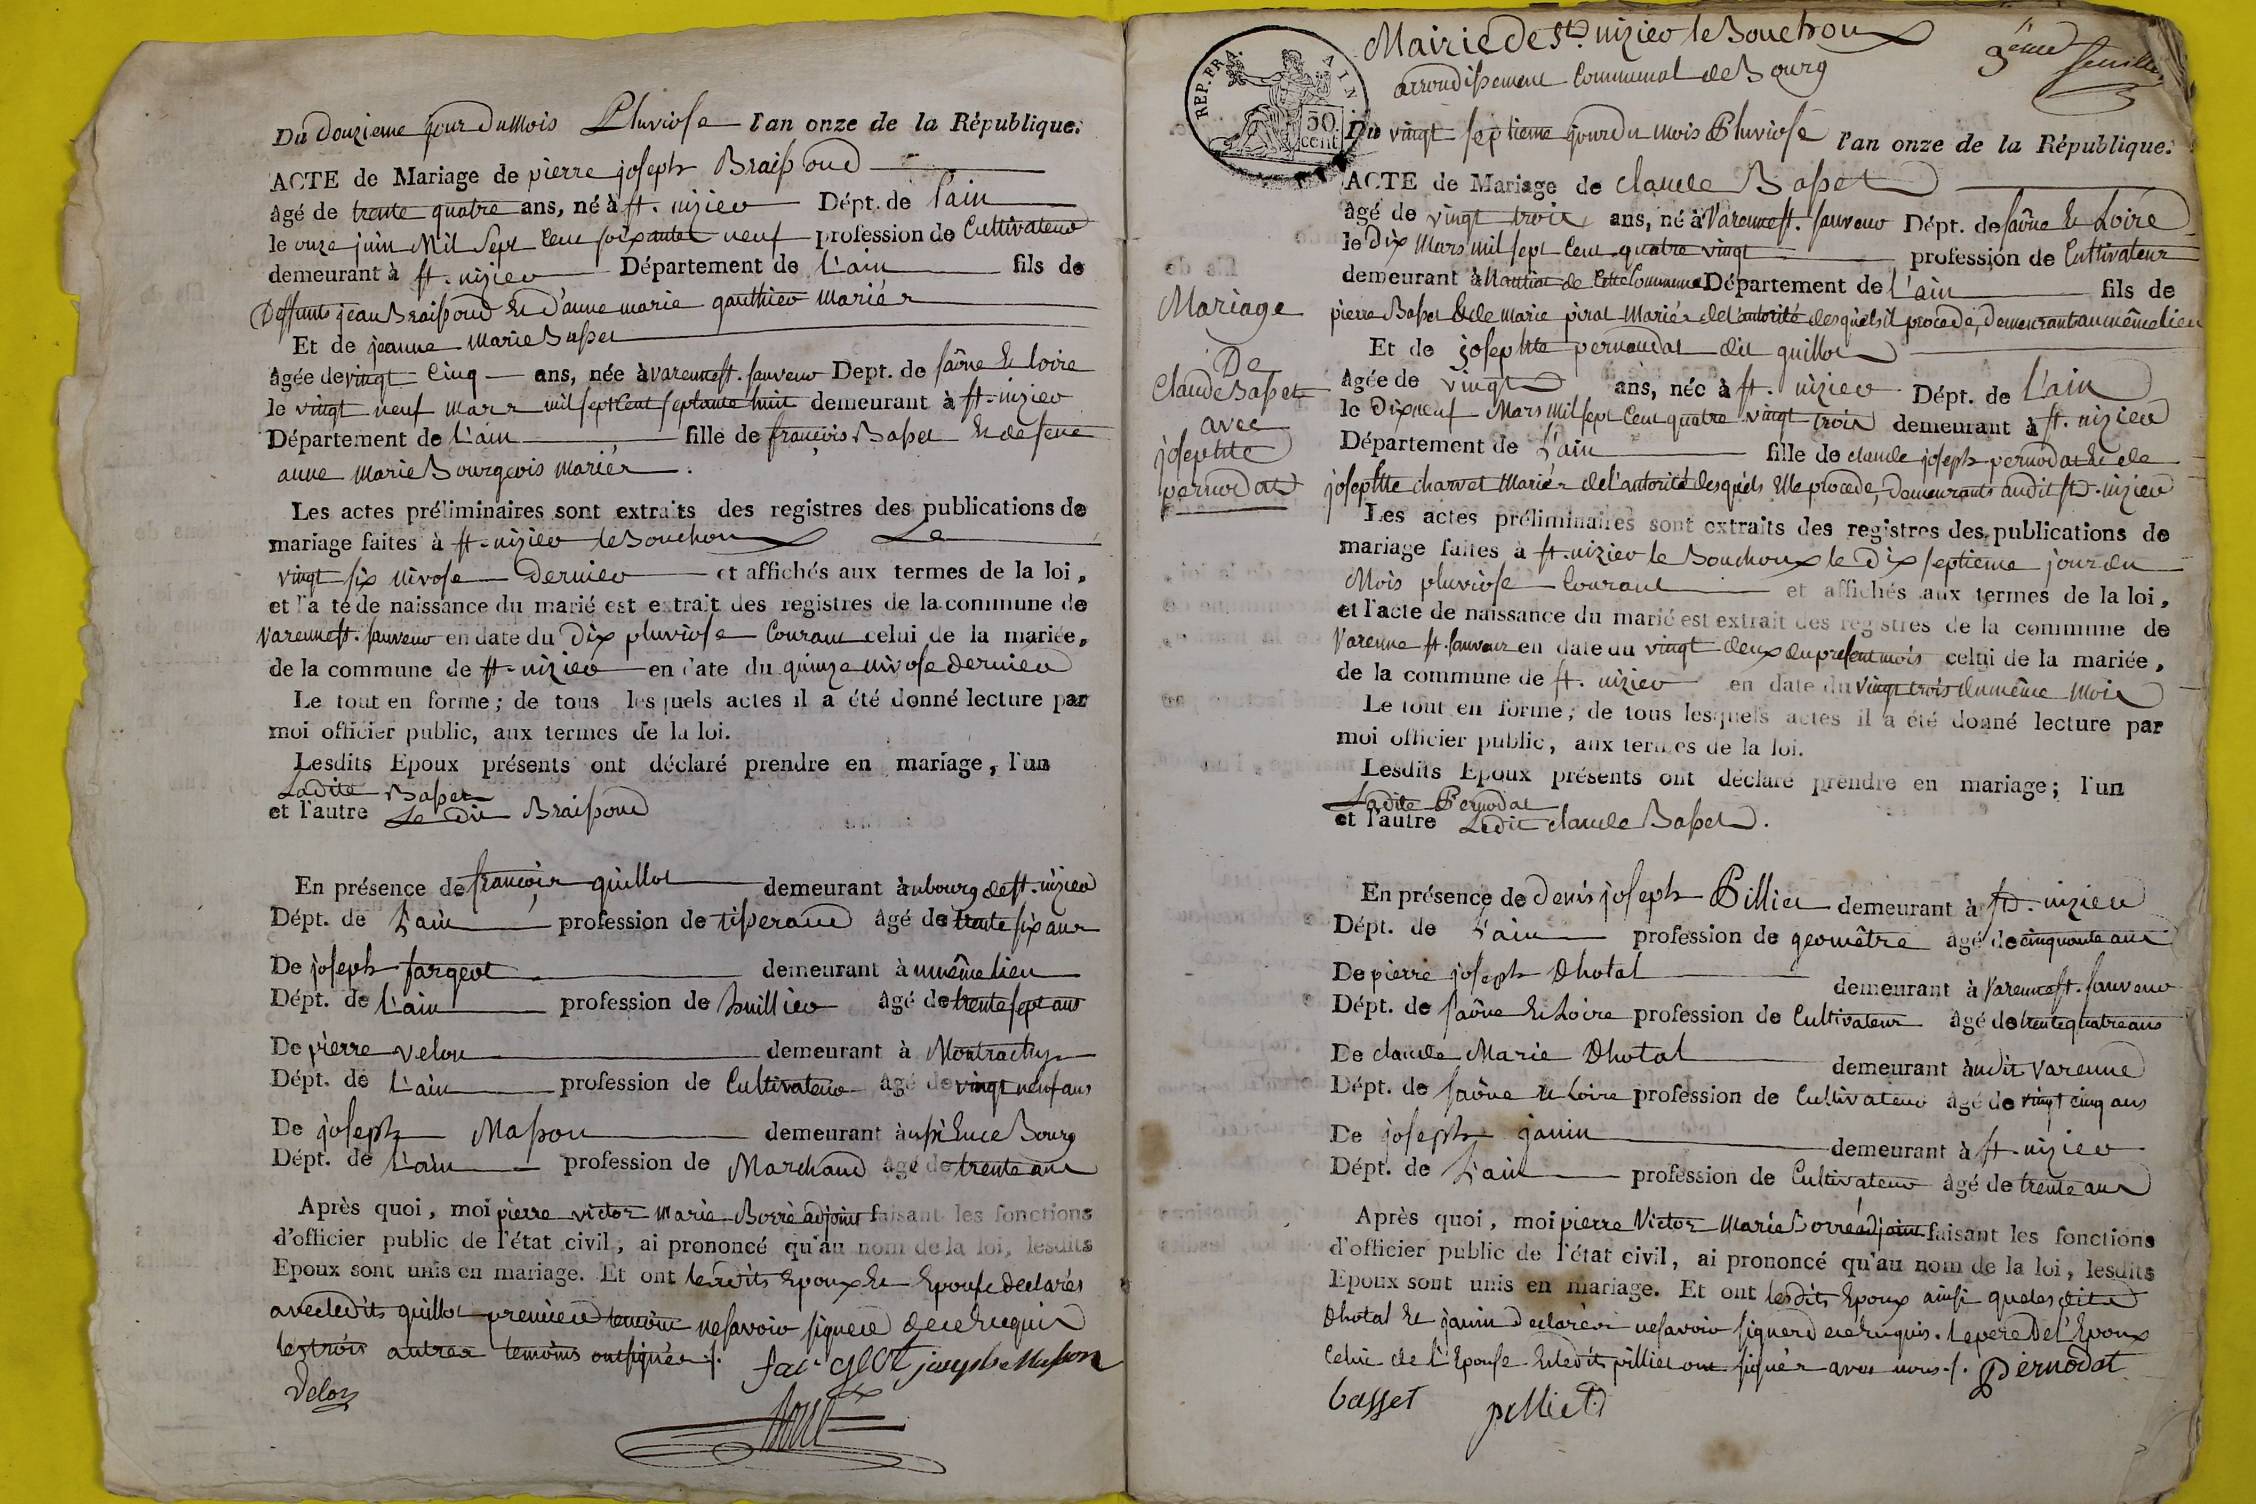 Du Douzieme jour Du Mois Pluviose l'an onze de la République.
ACTE de Mariage de pierre joseph Braissoud
âgé de trente quatre ans, né à st. nizier Dépt. de l'ain
le onze juin Mil Sept Cent soixante neuf profession de Cultivateur
demeurant à st. nizier Département de L'ain fils de
Deffunts jean Braissoud Et D'anne marie gauthier mariés
Et de jeanne Marie Basset
âgée de vingt Cinq ans, née à varenne st. sauveur Dept. de saône Et loire
le vingt neuf mars mil sept Cent septante huit demeurant à st. nizier
Département de L'ain fille de françois Basset Et de feue
anne Marie Bourgeois mariés.
Les actes préliminaires sont extraits des registres des publications de
mariage faites à st. nizier le Bouchoux Le
vingt six nivose Dernier et affichés aux termes de la loi,
et l'a te de naissance du marié est extrait des registres de la commune de
Varenne st. sauveur en date du Dix pluviose Courant celui de la mariée,
de la commune de st. nizier en date du quinze nivose dernier
Le tout en forme; de tous lesquels actes il a été donné lecture par
moi officier public, aux termes de la loi.
Lesdits Epoux présents ont déclaré prendre en mariage, l'un
Ladite Basset
et l'autre Le dit Braissoud
En présence de françois guillot demeurant au bourg de st. nizier
Dépt. de L'ain profession de tisserand âgé de trente six ans
De joseph fargeot demeurant à u même lieu
Dépt. de L'ain profession de huillier âgé de trente sept ans
De pierre velon demeurant à Montrachy
Dépt. de L'ain profession de Cultivateur âgé de vingt neuf ans
De joseph Masson demeurant à
Dépt. de L'ain profession de Marchand âgé de trente ans
Après quoi, moi pierre victor Marie Borré adjoint faisant les fonctions
d'officier public de l'état civil, ai prononcé qu'au nom de la loi, lesdits
Epoux sont unis en mariage. Et ont lesdits Epoux Et Epouse declarés
avec ledits guillot premier temoin ne savoir signer de ce Enquis
les trois autres temoins ont signés ./.
joseph Masson
Velon
Mairie de St. nizier le Bouchoux
arrondissement Communal de Bourg
3eme feuillet
REP. FRA. AIN
50 cent
Du vingt septieme jour du mois Pluviose l'an onze de la République.
ACTE de Mariage de claude Basset
âgé de vingt trois ans, né à Varenne st. sauveur Dépt. de saône Et Loire
le Dix Mars mil sept Cent quatre vingt profession de Cultivateur
demeurant à Nantiat de Cette Commune Département de L'ain fils de
pierre Basset Et de Marie pirat Mariés de l'autorité desquels il procede, Demeurants au même lieu
Et de josephte pernodat dit guillot
âgée de vingt ans, née à st. nizier Dépt. de L'ain
le Dix neuf Mars mil sept Cent quatre vingt trois demeurant à st. nizier
Département de L'ain fille de claude joseph pernodat Et de
josephte charvet Mariés de l'autorité desquels Elle procede, Demeurants audit st. nizier
Mariage
De
Claude Basset
avec
josephte
pernodat
Les actes préliminaires sont extraits des registres des publications de
mariage faites à st. nizier le Bouchoux le Dix septieme jour du
Mois pluviose Courant et affichés aux termes de la loi,
et l'acte de naissance du marié est extrait des registres de la commune de
Varenne st. sauveur en date du vingt deux du present mois celui de la mariée,
de la commune de st. nizier en date du vingt trois du même mois
Le tout en forme; de tous lesquels actes il a été donné lecture par
moi officier public, aux termes de la loi.
Lesdits Epoux présents ont déclaré prendre en mariage; l'un
Ladite Pernodat
et l'autre Ledit claude Basset.
En présence de Denis joseph Pilliet demeurant à st. nizier
Dépt. de L'ain profession de geomêtre âgé de cinquante ans
De pierre joseph Dhotal demeurant à Varenne st. sauveur
Dépt. de saône Et Loire profession de Cultivateur âgé de trente quatre ans
De claude Marie Dhotal demeurant à udit varenne
Dépt. de saône Et Loire profession de Cultivateur âgé de vingt cinq ans
De joseph janin demeurant à st. nizier
Dépt. de L'ain profession de Cultivateur âgé de trente ans
Après quoi, moi pierre Victor Marie Borré adjoint faisant les fonctions
d'officier public de l'état civil, ai prononcé qu'au nom de la loi, lesdits
Epoux sont unis en mariage. Et ont lesdits Epoux ainsi que les dits
Dhotal Et janin Declarés ne savoir signer de ce Enquis. le pere De l'Epoux
Celui de l'Epouse Et ledit pilliet ont signés avec nous ./. Pernodat
basset pilliet